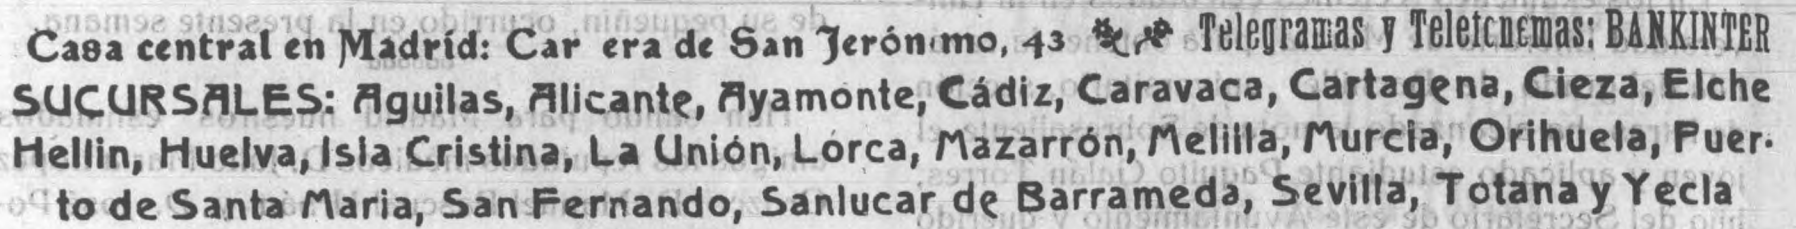 Casa central en Madrid: Car era de San Jerónimo, 43 Telegramas y Telefonemas: BANKINTER
SUCURSALES: Aguilas, Alicante, Ayamonte, Cádiz, Caravaca, Cartagena, Cieza, Elche
Hellin, Huelva, Isla Cristina, La Unión, Lorca, Mazarrón, Melilla, Murcia, Orihuela, Puer-
to de Santa Maria, San Fernando, Sanlucar de Barrameda, Sevilla, Totana y Yecla